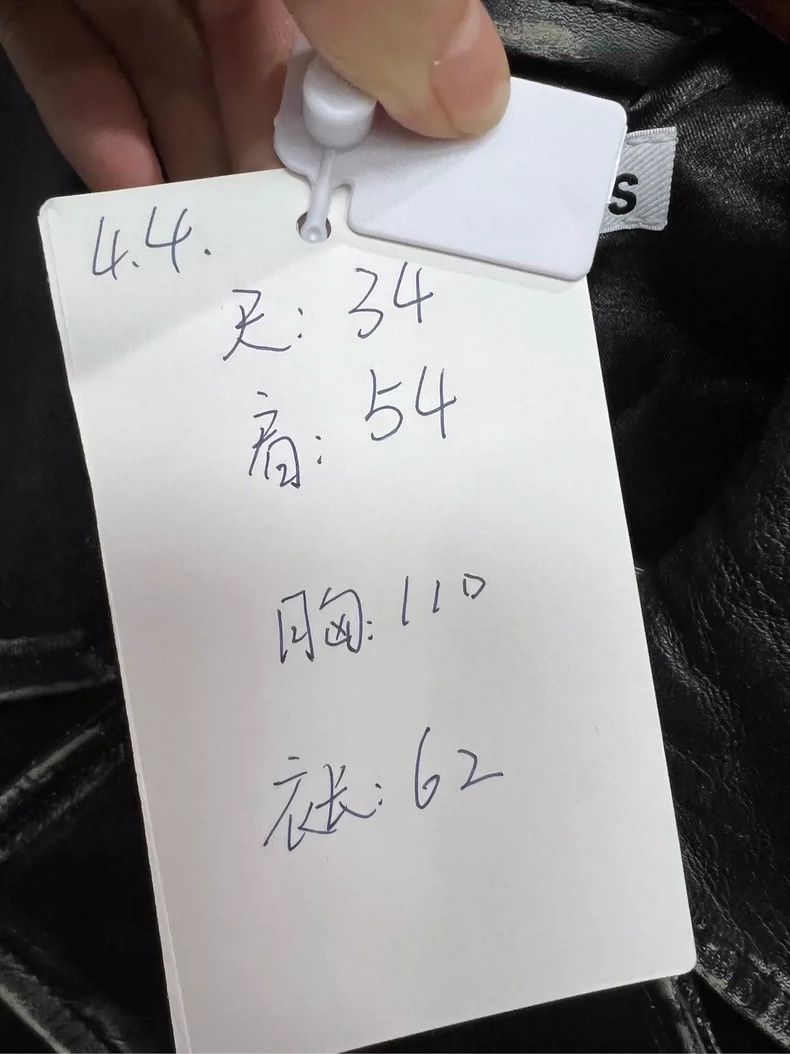 S
4.4.
: 34
肩: 54
胸: 110
衣长: 62